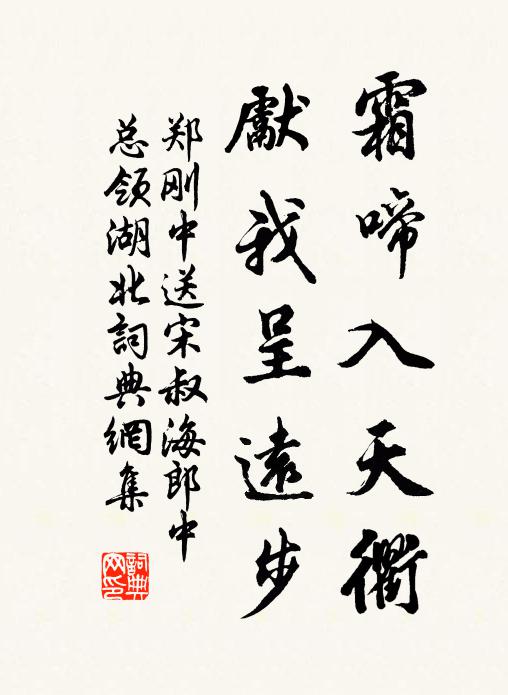 霜啼入天衢
獻我呈遠步
郑刚中送宋叔海郎中
总领湖北詞典網集
詞典网印